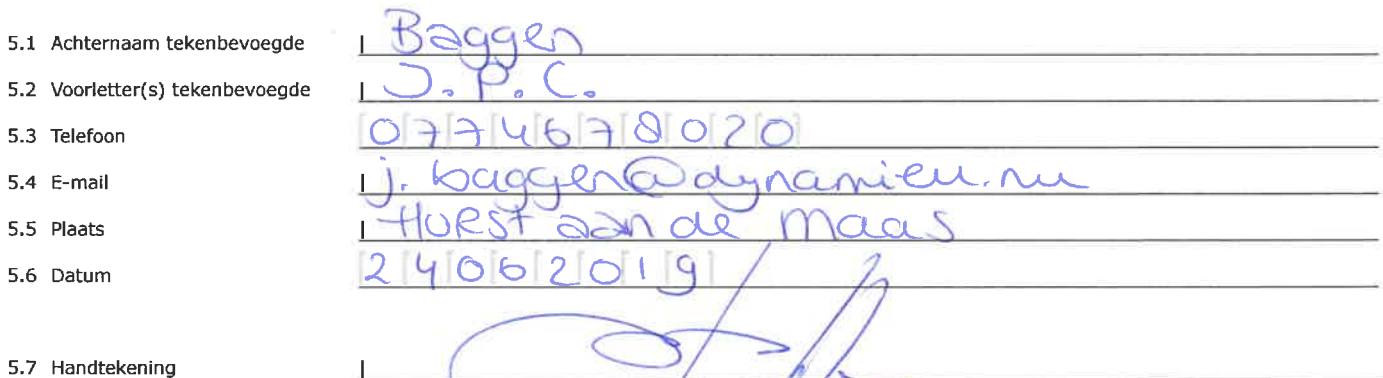 5.1 Achternaam tekenbevoegde Baggen
5.2 Voorletter(s) tekenbevoegde J.P.C.
5.3 Telefoon 0774678020
5.4 E-mail j.baggen@dynamiek.nu
5.5 Plaats Horst aan de Maas
5.6 Datum 24062019
5.7 Handtekening